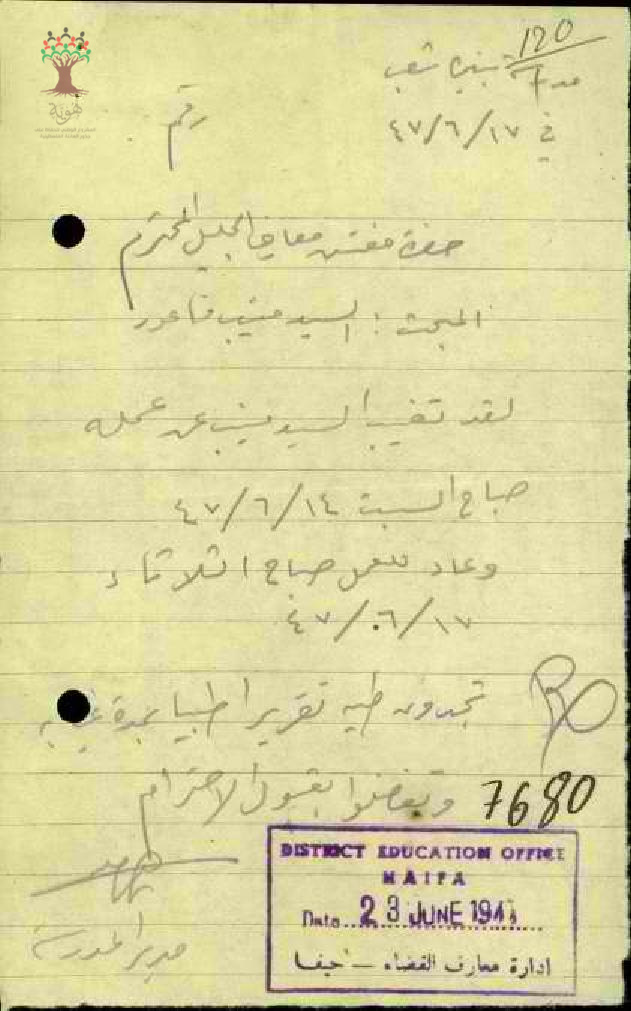 120
مدرسة شعب
في ١٧/٦/٤٧
رقم
هوية
حضرة مفتش معارف الجليل المحترم
المبحث : السيد منيب فاعور
لقد تغيب السيد منيب عن عمله
صباح السبت ١٤/٦/٤٧
وعاد للعمل صباح الثلاثاء
١٧/٠٦/٤٧
تجدون طيه تقريرا طبيا بمدة غيابه
وتفضلوا بقبول الاحترام
7680
مدير المدرسة
DISTRICT EDUCATION OFFICE
HAIFA
Date 23 JUNE 194
ادارة معارف القضاء - حيفا